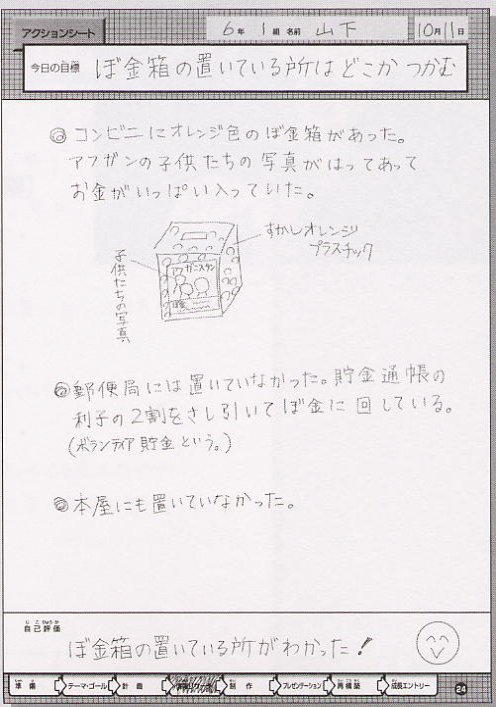 アクションシート
6年 1組 名前 山下
10月11日
今日の目標 ぼ金箱の置いている所はどこか つかむ
◎コンビニにオレンジ色のぼ金箱があった。
アフガンの子供たちの写真がはってあって
お金がいっぱい入っていた。
すかしオレンジ
プラスチック
子供たちの写真
アフガニスタン
◎郵便局には置いていなかった。貯金通帳の
利子の2割をさし引いてぼ金に回している。
(ボランティア貯金という。)
◎本屋にも置いていなかった。
自己評価
ぼ金箱の置いている所がわかった!
準備 テーマ・ゴール 計画 制作 プレゼンテーション 再構築 成長エントリー
24